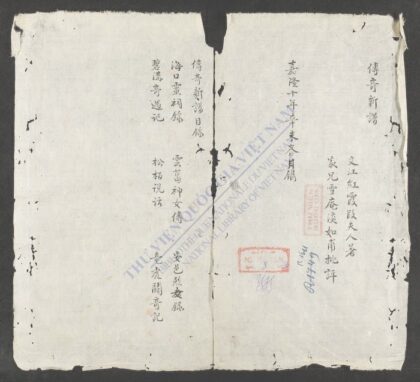 傳奇新譜
文江紅霞段夫人著
家兄雪庵淡如甫批評
嘉隆十年辛未文月鐫
傳奇新譜目錄
海口靈祠錄 雲葛神女傳 安邑烈女錄
碧溝奇遇記 松柏說話 龍虎鬪奇記
THƯ VIỆN QUỐC GIA VIỆT NAM
NATIONAL LIBRARY OF VIETNAM